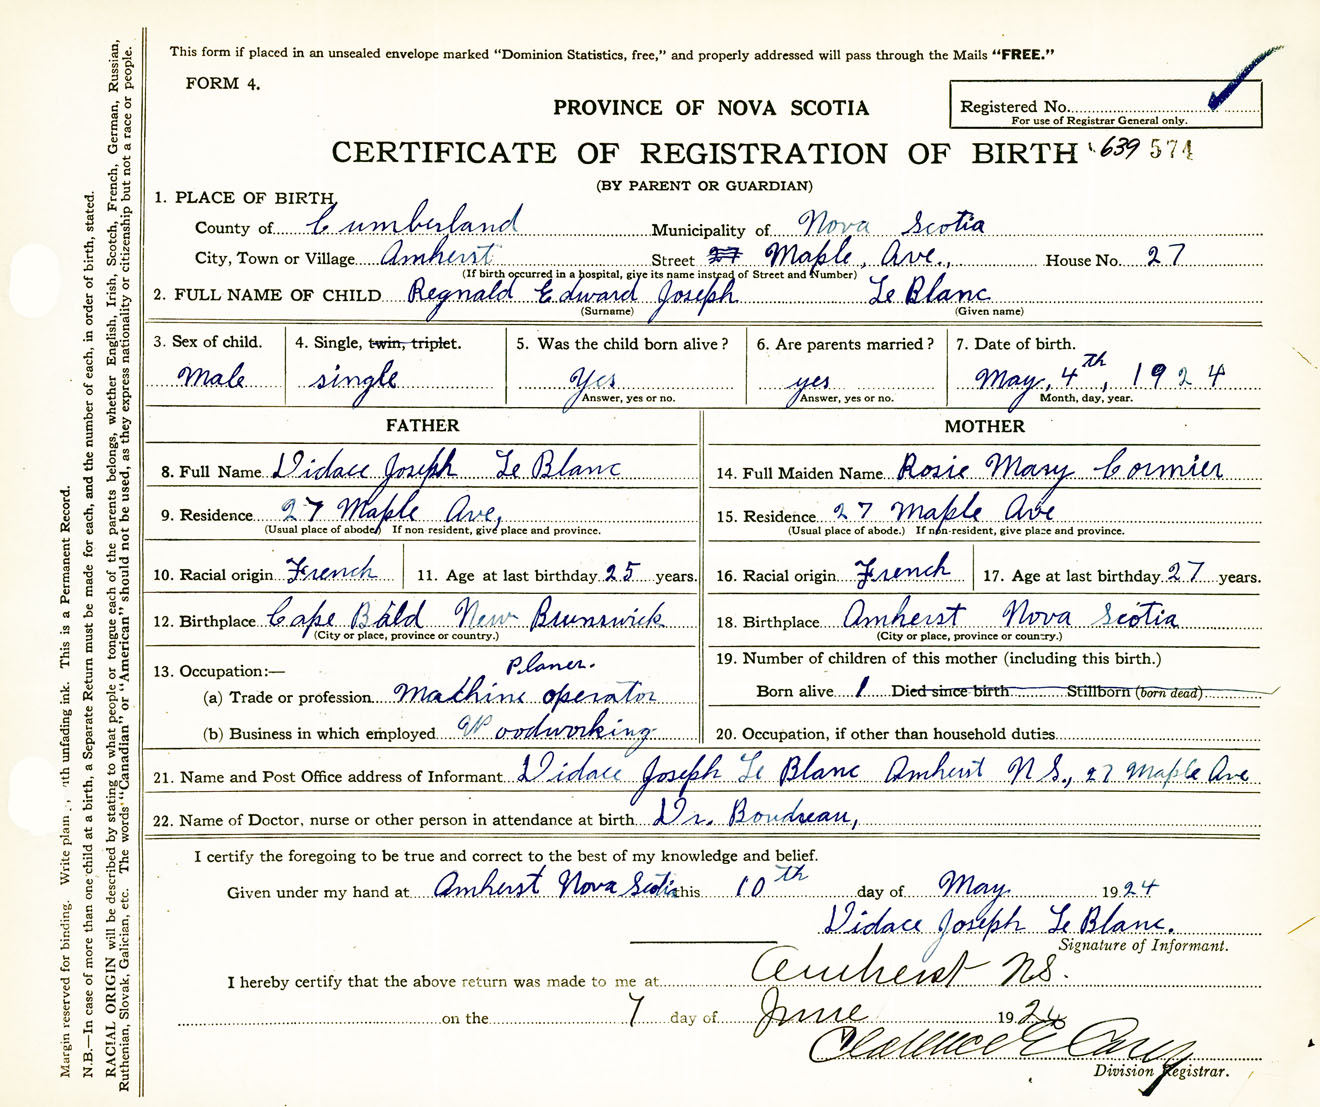 This form if placed in an unsealed envelope marked "Dominion Statistics, free," and properly addressed will pass through the Mails "FREE."
FORM 4.
PROVINCE OF NOVA SCOTIA
Registered No.
For use of Registrar General only.
CERTIFICATE OF REGISTRATION OF BIRTH 639 574
(BY PARENT OR GUARDIAN)
1. PLACE OF BIRTH,
County of Cumberland Municipality of Nova Scotia
City, Town or Village Amherst Street 27 Maple, Ave., House No. 27
(If birth occurred in a hospital, give its name instead of Street and Number)
2. FULL NAME OF CHILD Regnald Edward Joseph Le Blanc
(Surname) (Given name)
3. Sex of child. 4. Single, twin, triplet. 5. Was the child born alive? 6. Are parents married? 7. Date of birth.
Male single Yes yes May, 4th, 1924
Answer, yes or no. Answer, yes or no. Month, day, year.
FATHER MOTHER
8. Full Name Vidace Joseph Le Blanc 14. Full Maiden Name Rosie Mary Cormier
9. Residence 27 Maple Ave, 15. Residence 27 Maple Ave
(Usual place of abode) If non-resident, give place and province. (Usual place of abode.) If non-resident, give place and province.
10. Racial origin French 11. Age at last birthday 25 years. 16. Racial origin French 17. Age at last birthday 27 years.
12. Birthplace Cape Bald New Brunswick 18. Birthplace Amherst Nova Scotia
(City or place, province or country.) (City or place, province or country.)
13. Occupation:— Planer. 19. Number of children of this mother (including this birth.)
(a) Trade or profession Machine operator Born alive 1 Died since birth Stillborn (born dead)
(b) Business in which employed Woodworking 20. Occupation, if other than household duties
21. Name and Post Office address of Informant Vidace Joseph Le Blanc Amherst N S., 27 Maple Ave
22. Name of Doctor, nurse or other person in attendance at birth Dr. Boudreau,
I certify the foregoing to be true and correct to the best of my knowledge and belief.
Given under my hand at Amherst Nova Scotia this 10th day of May 1924
Vidace Joseph Le Blanc.
Signature of Informant.
I hereby certify that the above return was made to me at Amherst NS.
on the 7 day of June 192
Clarence E
Division Registrar.
Margin reserved for binding. Write with unfading ink. This is a Permanent Record.
N.B.—In case of more than one child at a birth, a Separate Return must be made for each, and the number of each, in order of birth, stated.
RACIAL ORIGIN will be described by stating to what people or tongue each of the parents belongs, whether English, Irish, Scotch, French, German, Russian,
Ruthenian, Slovak, Galician, etc. The words "Canadian" or "American" should not be used, as they express nationality or citizenship but not a race or people.